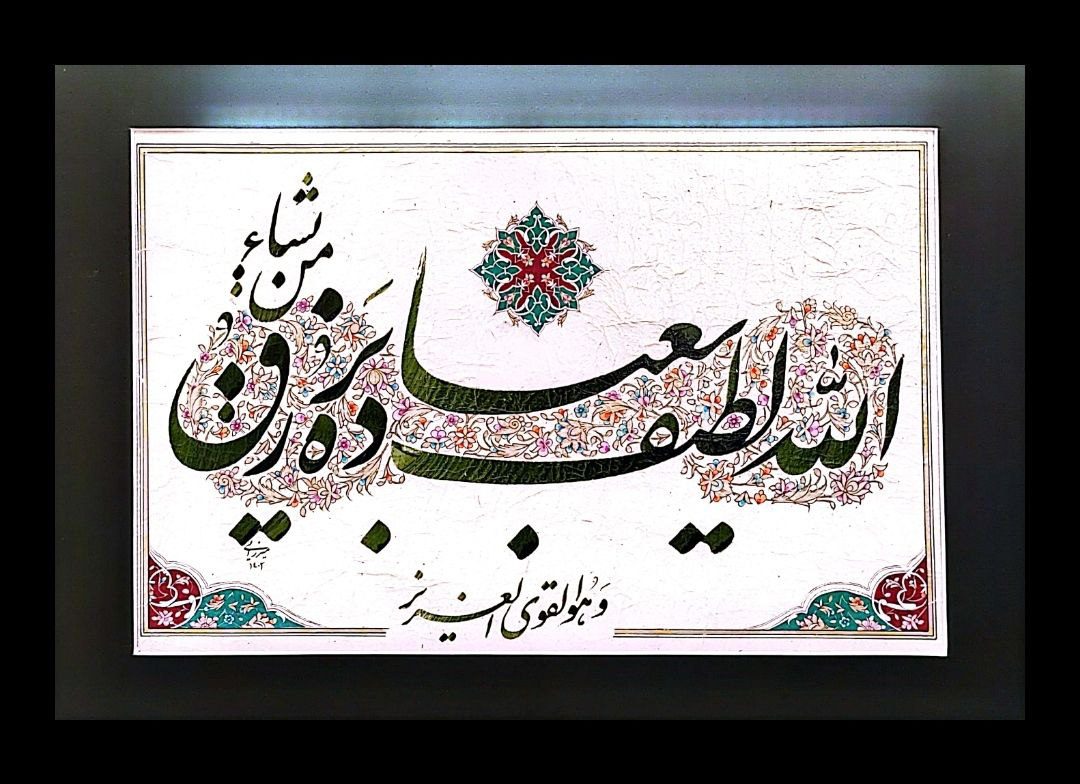 الله لطیف بعباده یرزق
من یشاء
وَهُوالقوی العزیز
۱۴۰۲